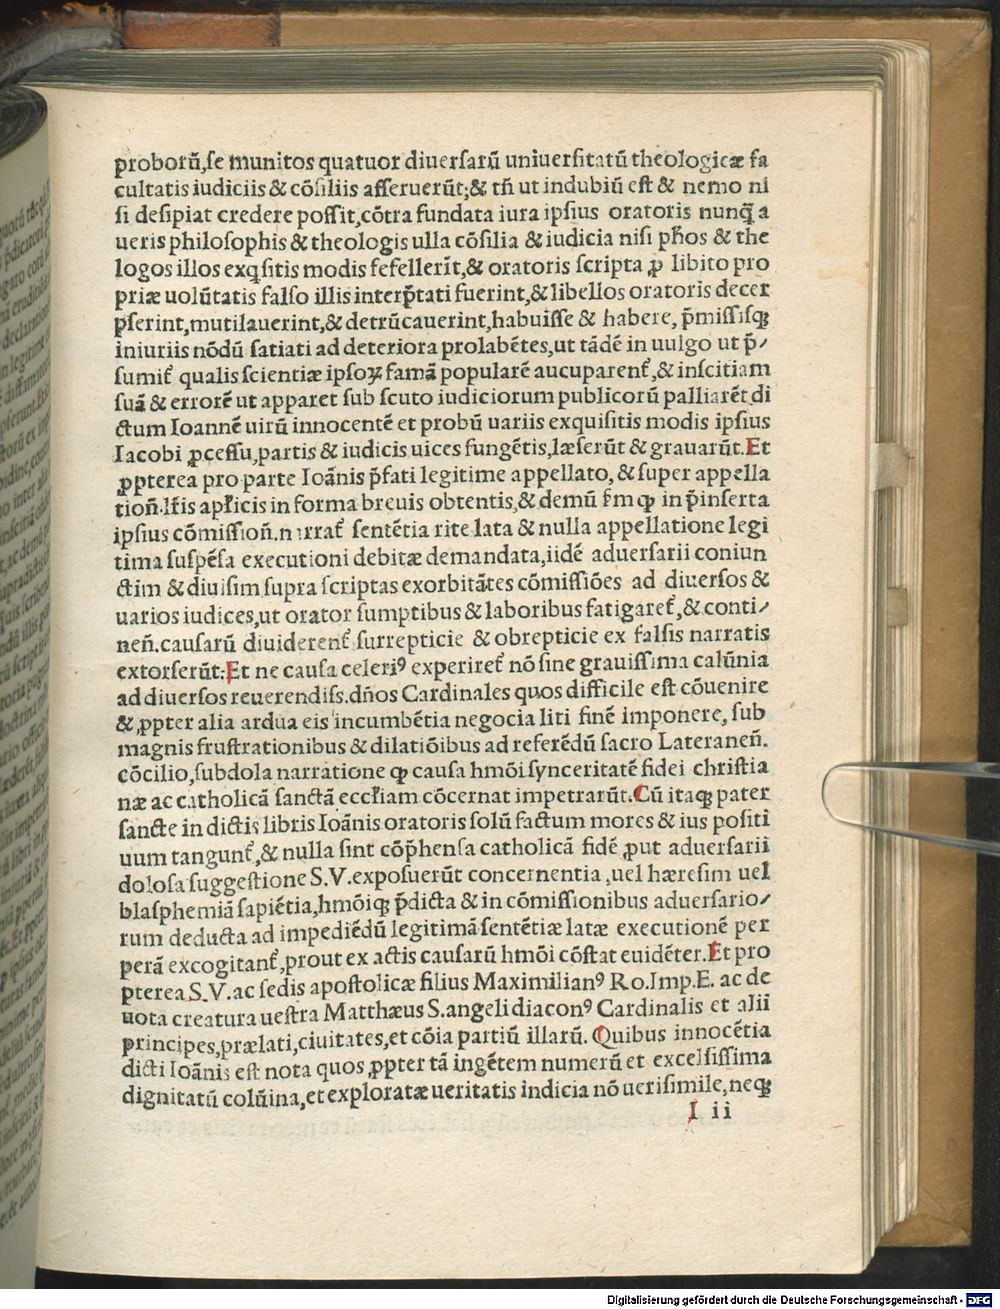 proborū,se munitos quatuor diuersarū uniuersitatū theologicæ fa
cultatis iudiciis & cōsiliis asseruerūt;& tñ ut indubiū est & nemo ni
si desipiat credere possit,cōtra fundata iura ipsius oratoris nunq̄ a
ueris philosophis & theologis ulla cōsilia & iudicia nisi pħos & the
logos illos exqsitis modis fefellerīt,& oratoris scripta ꝓ libito pro
priæ uolūtatis falso illis interp̄tati fuerint,& libellos oratoris decer
pserint,mutilauerint,& detrūcauerint,habuisse & habere, p̄missisꝗ
iniuriis nōdū satiati ad deteriora prolabētes,ut tādē in uulgo ut p̄⸗
sumit᷑ qualis scientiæ ipsoꝝ famā popularē aucuparent᷑,& inscitiam
suā & errorē ut apparet sub scuto iudiciorum publicorū palliarēt,di
ctum Ioannē uirū innocentē et probū uariis exquisitis modis ipsius
Iacobi ꝓcessu,partis & iudicis uices fungētis,læserūt & grauarūt.Et
ꝓpterea pro parte Ioānis p̄fati legitime appellato, & super appella
tioñ.lr̄is apl̄icis in forma breuis obtentis,& demū f̄m ꝙ in p̄inserta
ipsius cōmissioñ.narrat᷑ sentētia rite lata & nulla appellatione legi
tima suspēsa executioni debitæ demandata,iidē aduersarii coniun
ctim & diuisim supra scriptas exorbitātes cōmissiōes ad diuersos &
uarios iudices,ut orator sumptibus & laboribus fatigaret᷑,& conti⸗
neñ.causarū diuiderent᷑ surrepticie & obrepticie ex falsis narratis
extorserūt:Et ne causa celeriꝰ experiret᷑ nō sine grauissima calūnia
ad diuersos reuerendiss.dños Cardinales quos difficile est cōuenire
& ꝓpter alia ardua eis incumbētia negocia liti finē imponere, sub
magnis frustrationibus & dilatiōibus ad referēdū sacro Lateraneñ.
cōcilio,subdola narratione ꝙ causa hmōi synceritatē fidei christia
næ ac catholicā sanctā eccl̄iam cōcernat impetrarūt.Cū itaꝗ pater
sancte in dictis libris Ioānis oratoris solū factum mores & ius positi
uum tangunt᷑,& nulla sint cōp̄hensa catholicā fidē ꝓut aduersarii
dolosa suggestione S.V.exposuerūt concernentia,uel hæresim uel
blasphemiā sapiētia,hmōiꝗ p̄dicta & in cōmissionibus aduersario⸗
rum deducta ad impediēdū legitimā sentētiæ latæ executionē per
perā excogitant᷑,prout ex actis causarū hmōi cōstat euidēter.Et pro
pterea S.V.ac sedis apostolicæ filius Maximilianꝰ Ro.Imp.E. ac de
uota creatura uestra Matthæus S.angeli diaconꝰ Cardinalis et alii
principes,prælati,ciuitates,et cōia partiū illarū. Quibus innocētia
dicti Ioānis est nota quos ꝓpter tā ingētem numerū et excelsissima
dignitatū colūina,et exploratæ ueritatis indicia nō uerisimile,neꝗ
I ii
Digitalisierung gefördert durch die Deutsche Forschungsgemeinschaft - DFG